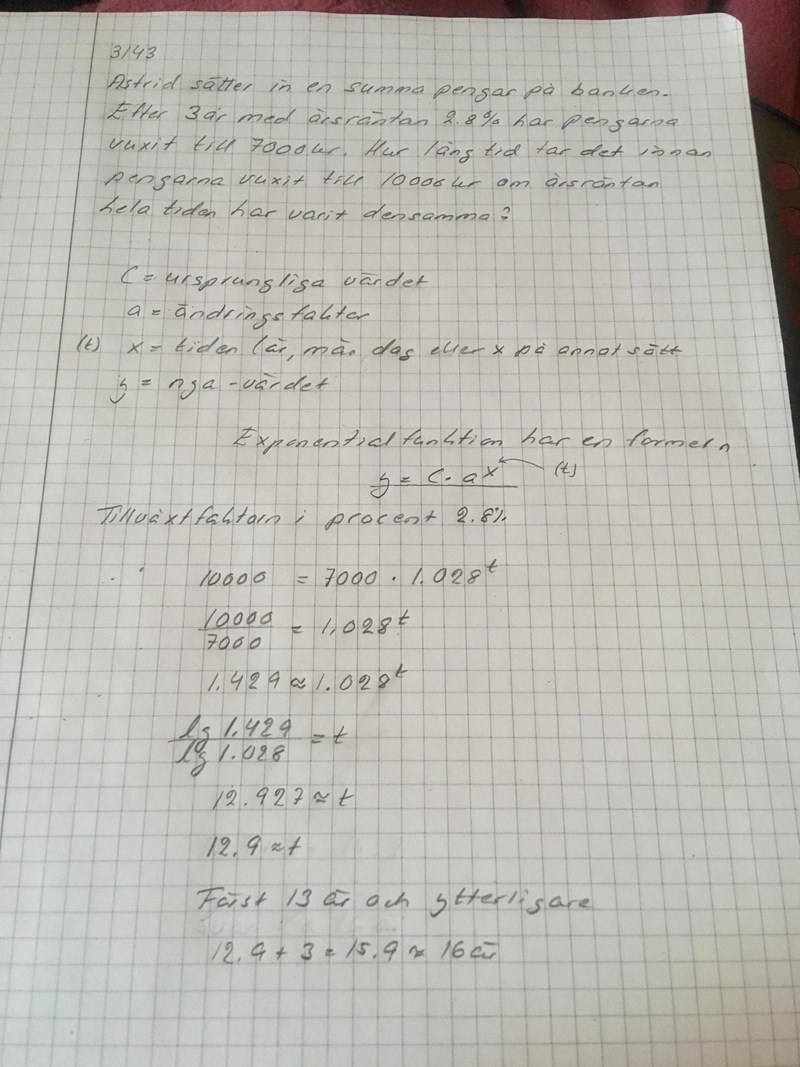 3143
Astrid sätter in en summa pengar på banken.
Efter 3år med årsräntan 2.8% har pengarna
vuxit till 7000kr. Hur lång tid tar det innan
pengarna vuxit till 10000kr om årsräntan
hela tiden har varit densamma?
C = ursprungliga värdet
a = ändringsfaktor
(t) x = tiden (år, mån, dag eller x på annat sätt
y = nya-värdet
Exponentialfunktion har en formeln
y = C · a^x (t)
Tillväxtfaktorn i procent 2.8%
10000 = 7000 · 1.028^t
10000/7000 = 1,028^t
1.429 ≈ 1.028^t
lg 1.429/lg 1.028 = t
12.927 ≈ t
12.9 ≈ t
Först 13 år och ytterligare
12.9 + 3 = 15.9 ≈ 16 år